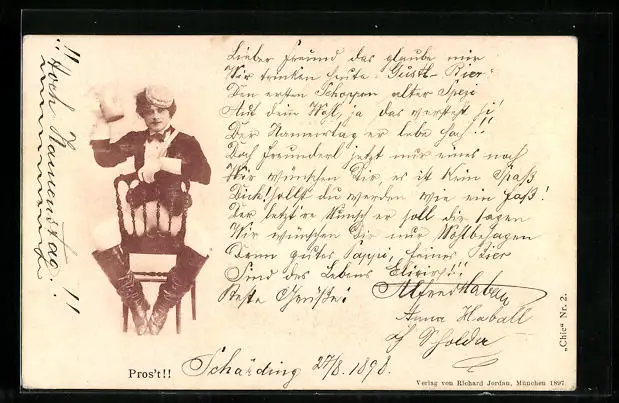 !! Hoch Namenstag !!
Lieber Freund das glaube mir
Wir trinken heute "Gustl-Bier"
Den ersten Schoppen alter Spezi
Auf dein Wohl, ja das versteht si!
Der Namenstag er lebe hoch!!
Doch Freunderl jetzt nur eins noch
Wir wünschen Dir, es ist kein Spaß
Dick sollst du werden wie ein Faß!
Der letzt're Wunsch er soll dir sagen
Wir wünschen Dir nur Wohlbehagen
Denn gutes Pappi, feines Bier
Sind des Lebens Elixir!!!
Beste Grüße!
Alfred
Anna
Pros't!!
Schärding 27/8. 1898.
„Chic" Nr. 2.
Verlag von Richard Jordan, München 1897.